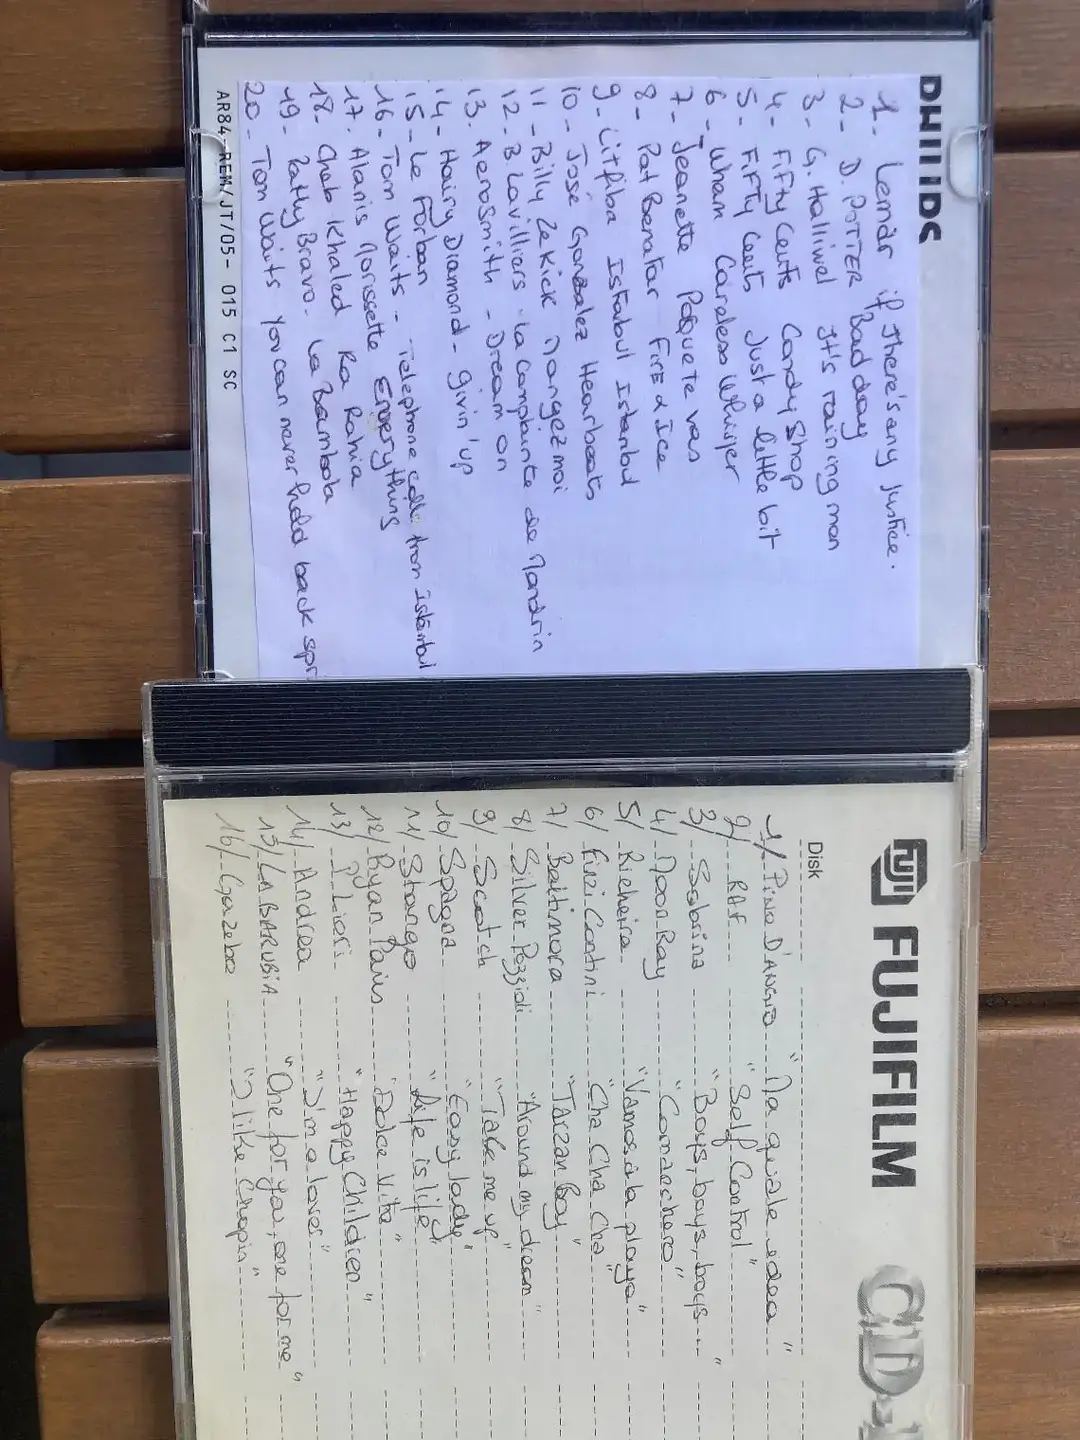 PHILIPS
1- Lemar if There's any Justice.
2- D. POTTER Bad day
3- G. Halliwel It's raining man
4- FiFTy Cents Candy Shop
5- FiFTy Cents Just a little bit
6- Wham Careless Whisper
7- Jeanette Porquete vas
8- Pat Benatar Fire & Ice
9- Litfiba Istabul Istanbul
10- José Gonzalez Hearbeats
11- Billy Ze Kick Mangez moi
12- B. Lavilliers - La Complainte de Mandrin
13. Aerosmith - Dream on
14- Hairy Diamond - givin'up
15- Le Forban
16- Tom Waits - Telephone call from Istanbul
17. Alanis Morissette Everything
18- Cheb Khaled Ra Rahia
19- Patty Bravo. La Bambola
20- Tom Waits You can never hold back spr
AR84-REM/JT/05- 015 C1 SC
FUJI FUJIFILM CD-
Disk
1/ Pino D'ANGIO "Ma quale idea"
2/ RAF "Self Control"
3/ Sabrina "Boys, boys, boys"
4/ Moon Ray "Comanchero"
5/ Richeira "Vamos a la playa"
6/ Finzi Contini "Cha Cha Cha"
7/ Baltimora "TARZAN Boy"
8/ Silver Pozzioli "Around my dream"
9/ Scotch "Take me up"
10/ Spagna "Easy lady"
11/ Stargo "Life is life"
12/ Ryan Paris "Dolce Vita"
13/ P. Lion "Happy Children"
14/ Andrea "I'm a lover"
15/ LA BARUBIA "One for you, one for me"
16/ Gazebo "I like Chopin"